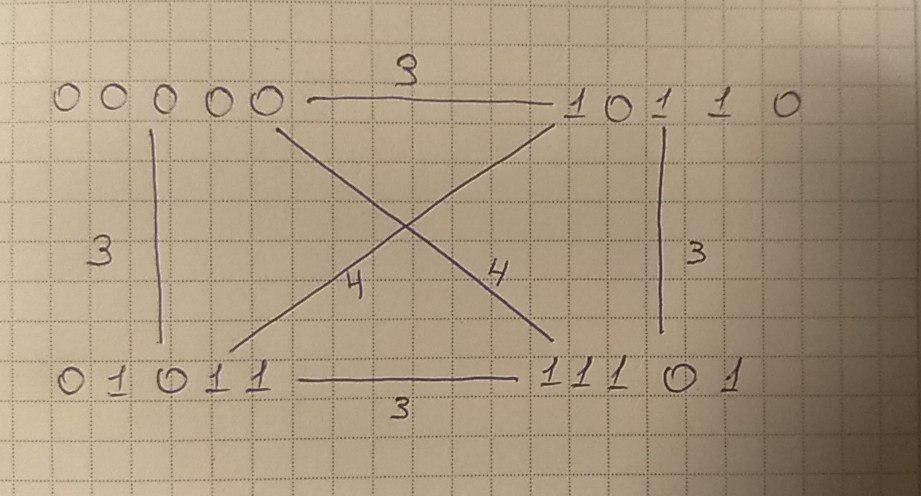 3
0 0 0 0 0 1 0 1 1 0
3 4 4 3
0 1 0 1 1 1 1 1 0 1
3